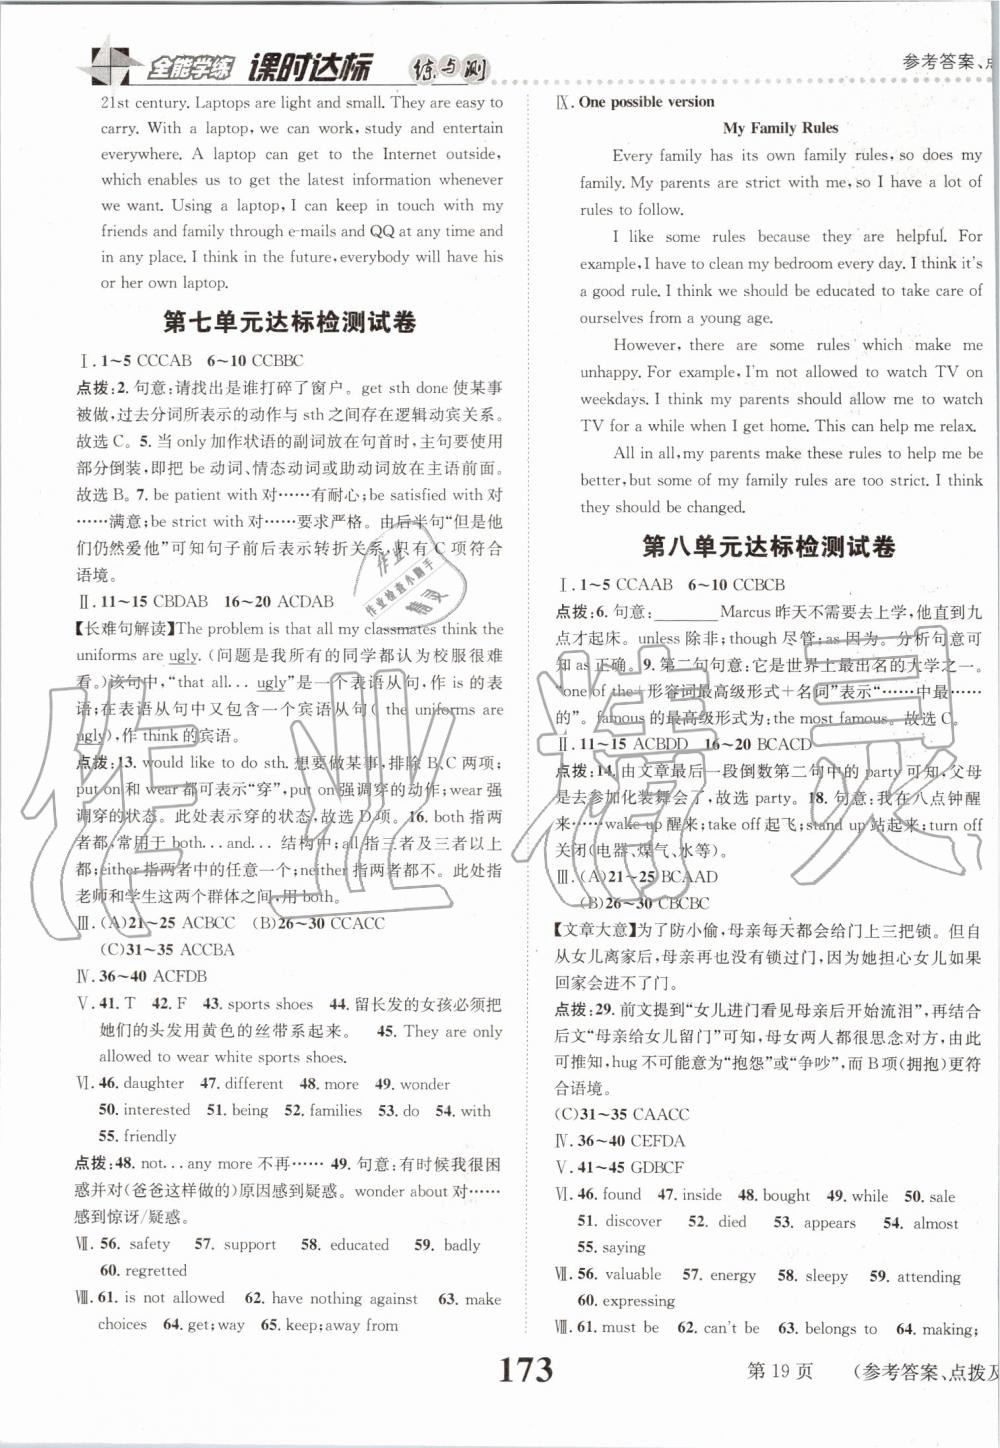 全能学练 课时达标 练与测
参考答案、点
21st century. Laptops are light and small. They are easy to
carry. With a laptop, we can work, study and entertain
everywhere. A laptop can get to the Internet outside,
which enables us to get the latest information whenever
we want. Using a laptop, I can keep in touch with my
friends and family through e-mails and QQ at any time and
in any place. I think in the future, everybody will have his
or her own laptop.
第七单元达标检测试卷
Ⅰ. 1~5 CCCAB 6~10 CCBBC
点拨:2. 句意:请找出是谁打碎了窗户。get sth done 使某事
被做,过去分词所表示的动作与 sth 之间存在逻辑动宾关系。
故选 C。5. 当 only 加作状语的副词放在句首时,主句要使用
部分倒装,即把 be 动词、情态动词或助动词放在主语前面。
故选 B。7. be patient with 对……有耐心;be satisfied with 对
……满意;be strict with 对……要求严格。由后半句“但是他
们仍然爱他”可知句子前后表示转折关系,只有 C 项符合
语境。
Ⅱ. 11~15 CBDAB 16~20 ACDAB
【长难句解读】The problem is that all my classmates think the
uniforms are ugly. (问题是我所有的同学都认为校服很难
看。)该句中,“that all... ugly”是一个表语从句,作 is 的表
语;在表语从句中又包含一个宾语从句( the uniforms are
ugly),作 think 的宾语。
点拨:13. would like to do sth. 想要做某事,排除 B、C 两项;
put on 和 wear 都可表示“穿”,put on 强调穿的动作;wear 强
调穿的状态。此处表示穿的状态,故选 D 项。16. both 指两
者都,常用于 both...and... 结构中;all 指三者及三者以上
都;either 指两者中的任意一个;neither 指两者都不。此处指
老师和学生这两个群体之和,用 both。
Ⅲ. (A)21~25 ACBCC (B)26~30 CCACC
(C)31~35 ACCBA
Ⅳ. 36~40 ACFDB
Ⅴ. 41. T 42. F 43. sports shoes 44. 留长发的女孩必须把
她们的头发用黄色的丝带系起来。 45. They are only
allowed to wear white sports shoes.
Ⅵ. 46. daughter 47. different 48. more 49. wonder
50. interested 51. being 52. families 53. do 54. with
55. friendly
点拨:48. not...any more 不再…… 49. 句意:有时候我很困
惑并对(爸爸这样做的)原因感到疑惑。wonder about 对……
感到惊讶/疑惑。
Ⅶ. 56. safety 57. support 58. educated 59. badly
60. regretted
Ⅷ. 61. is not allowed 62. have nothing against 63. make
choices 64. get;way 65. keep;away from
Ⅸ. One possible version
My Family Rules
Every family has its own family rules, so does my
family. My parents are strict with me, so I have a lot of
rules to follow.
I like some rules because they are helpful. For
example, I have to clean my bedroom every day. I think it's
a good rule. I think we should be educated to take care of
ourselves from a young age.
However, there are some rules which make me
unhappy. For example, I'm not allowed to watch TV on
weekdays. I think my parents should allow me to watch
TV for a while when I get home. This can help me relax.
All in all, my parents make these rules to help me be
better, but some of my family rules are too strict. I think
they should be changed.
第八单元达标检测试卷
Ⅰ. 1~5 CCAAB 6~10 CCBCB
点拨:6. 句意:________ Marcus 昨天不需要去上学,他直到九
点才起床。unless 除非;though 尽管;as 因为。分析句意可
知 as 正确。9. 第二句句意:它是世界上最出名的大学之一。
“one of the+形容词最高级形式+名词”表示“……中最……
的”。famous 的最高级形式为:the most famous。故选 C。
Ⅱ. 11~15 ACBDD 16~20 BCACD
点拨:14. 由文章最后一段倒数第二句中的 party 可知,父母
是去参加化装舞会了,故选 party。18. 句意:我在八点钟醒
来……wake up 醒来;take off 起飞;stand up 站起来;turn off
关闭(电器、煤气、水等)。
Ⅲ. (A)21~25 BCAAD
(B)26~30 CBCBC
【文章大意】为了防小偷,母亲每天都会给门上三把锁。但自
从女儿离家后,母亲再也没有锁过门,因为她担心女儿如果
回家会进不了门。
点拨:29. 前文提到“女儿进门看见母亲后开始流泪”,再结合
后文“母亲给女儿留门”可知,母女两人都很思念对方,由此
可推知,hug 不可能意为“抱怨”或“争吵”,而 B 项(拥抱)更符
合语境。
(C)31~35 CAACC
Ⅳ. 36~40 CEFDA
Ⅴ. 41~45 GDBCF
Ⅵ. 46. found 47. inside 48. bought 49. while 50. sale
51. discover 52. died 53. appears 54. almost
55. saying
Ⅶ. 56. valuable 57. energy 58. sleepy 59. attending
60. expressing
Ⅷ. 61. must be 62. can't be 63. belongs to 64. making;
173
第 19 页 (参考答案、点拨及
作业精灵
作业检查小助手